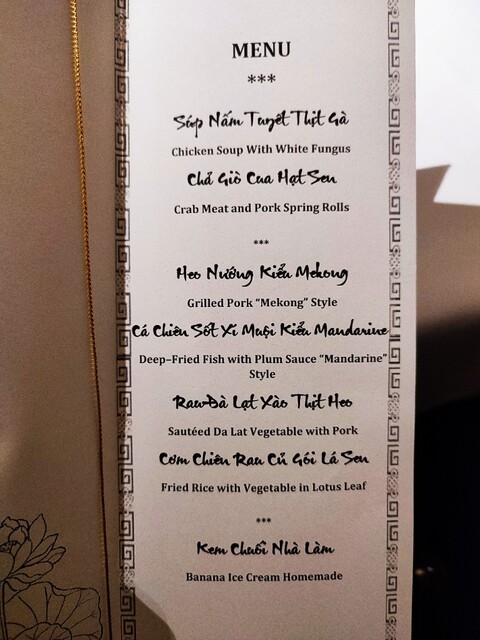 MENU
***
Súp Nấm Tuyết Thịt Gà
Chicken Soup With White Fungus
Chả Giò Cua Hạt Sen
Crab Meat and Pork Spring Rolls
***
Heo Nướng Kiểu Mekong
Grilled Pork “Mekong” Style
Cá Chiên Sốt Xí Muội Kiểu Mandarine
Deep-Fried Fish with Plum Sauce “Mandarine”
Style
Rau Đà Lạt Xào Thịt Heo
Sautéed Da Lat Vegetable with Pork
Cơm Chiên Rau Củ Gói Lá Sen
Fried Rice with Vegetable in Lotus Leaf
***
Kem Chuối Nhà Làm
Banana Ice Cream Homemade